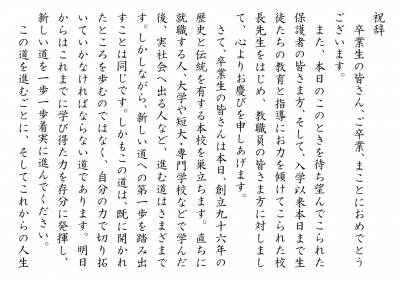 祝辞
　卒業生の皆さん、ご卒業、まことにおめでとう
ございます。
　また、本日のこのときを待ち望んでこられた
保護者の皆さま方、そして、入学以来本日まで生
徒たちの教育と指導にお力を傾けてこられた校
長先生をはじめ、教職員の皆さま方に対しまし
て、心よりお慶びを申しあげます。
　さて、卒業生の皆さんは本日、創立九十六年の
歴史と伝統を有する本校を巣立ちます。直ちに
就職する人、大学や短大・専門学校などで学んだ
後、実社会へ出る人など、進む道はさまざまで
す。しかしながら、新しい道への第一歩を踏み出
すことは同じです。しかもこの道は、既に開かれ
たところを歩むのではなく、自分の力で切り拓
いていかなければならない道であります。明日
からはこれまでに学び得た力を存分に発揮し、
新しい道を一歩一歩着実に進んでください。
　この道を進むごとに、そしてこれからの人生